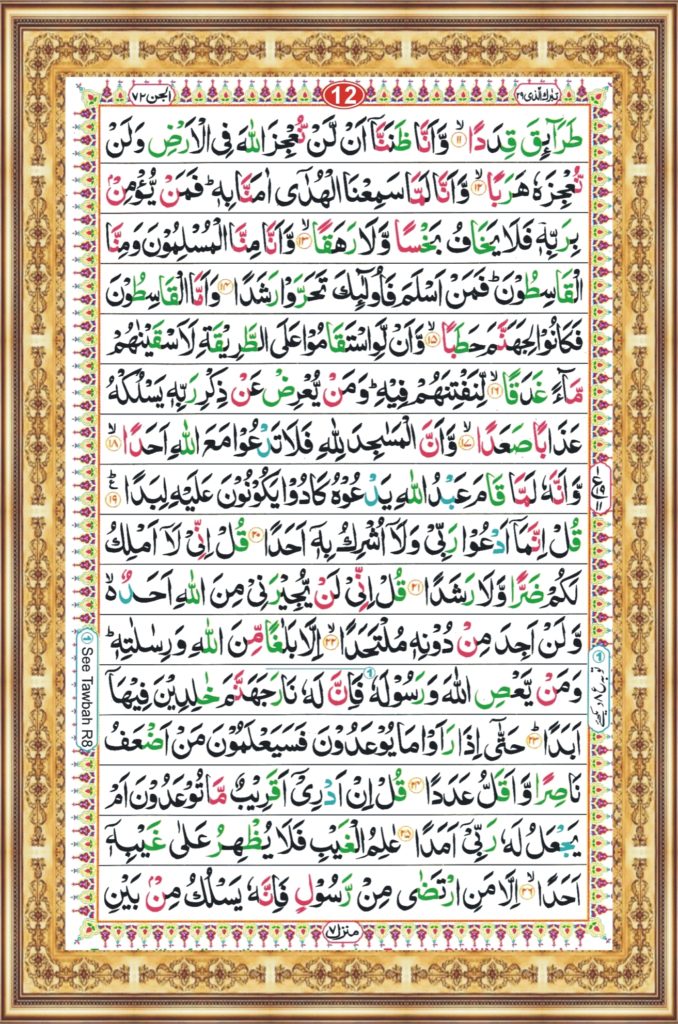 تبٰرك الذی ٢٩
12
الجن ٧٢
طَرَآئِقَ قِدَدًا ۙ﴿۱۱﴾ وَّاَنَّا ظَنَنَّاۤ اَنْ لَّنْ نُّعْجِزَ اللّٰهَ فِی الْاَرْضِ وَلَنْ
نُّعْجِزَهٗ هَرَبًا ۙ﴿۱۲﴾ وَّاَنَّا لَمَّا سَمِعْنَا الْهُدٰۤی اٰمَنَّا بِهٖ ؕ فَمَنْ یُّؤْمِنْۢ
بِرَبِّهٖ فَلَا یَخَافُ بَخْسًا وَّلَا رَهَقًا ۙ﴿۱۳﴾ وَّاَنَّا مِنَّا الْمُسْلِمُوْنَ وَمِنَّا
الْقَاسِطُوْنَ ؕ فَمَنْ اَسْلَمَ فَاُولٰٓئِكَ تَحَرَّوْا رَشَدًا ﴿۱۴﴾ وَاَمَّا الْقَاسِطُوْنَ
فَكَانُوْا لِجَهَنَّمَ حَطَبًا ۙ﴿۱۵﴾ وَّاَنْ لَّوِ اسْتَقَامُوْا عَلَی الطَّرِیْقَةِ لَاَسْقَیْنٰهُمْ
مَّآءً غَدَقًا ۙ﴿۱۶﴾ لِّنَفْتِنَهُمْ فِیْهِ ؕ وَمَنْ یُّعْرِضْ عَنْ ذِكْرِ رَبِّهٖ یَسْلُكْهُ
عَذَابًا صَعَدًا ۙ﴿۱۷﴾ وَّاَنَّ الْمَسٰجِدَ لِلّٰهِ فَلَا تَدْعُوْا مَعَ اللّٰهِ اَحَدًا ۙ﴿۱۸﴾
وَّاَنَّهٗ لَمَّا قَامَ عَبْدُ اللّٰهِ یَدْعُوْهُ كَادُوْا یَكُوْنُوْنَ عَلَیْهِ لِبَدًا ؕ﴿۱۹﴾ ع
قُلْ اِنَّمَاۤ اَدْعُوْا رَبِّیْ وَلَاۤ اُشْرِكُ بِهٖۤ اَحَدًا ﴿۲۰﴾ قُلْ اِنِّیْ لَاۤ اَمْلِكُ
لَكُمْ ضَرًّا وَّلَا رَشَدًا ﴿۲۱﴾ قُلْ اِنِّیْ لَنْ یُّجِیْرَنِیْ مِنَ اللّٰهِ اَحَدٌ ۙ۬
وَّلَنْ اَجِدَ مِنْ دُوْنِهٖ مُلْتَحَدًا ۙ﴿۲۲﴾ اِلَّا بَلٰغًا مِّنَ اللّٰهِ وَرِسٰلٰتِهٖ ؕ
وَمَنْ یَّعْصِ اللّٰهَ وَرَسُوْلَهٗ فَاِنَّ لَهٗ نَارَ جَهَنَّمَ خٰلِدِیْنَ فِیْهَاۤ
اَبَدًا ؕ﴿۲۳﴾ حَتّٰۤی اِذَا رَاَوْا مَا یُوْعَدُوْنَ فَسَیَعْلَمُوْنَ مَنْ اَضْعَفُ
نَاصِرًا وَّاَقَلُّ عَدَدًا ﴿۲۴﴾ قُلْ اِنْ اَدْرِیْۤ اَقَرِیْبٌ مَّا تُوْعَدُوْنَ اَمْ
یَجْعَلُ لَهٗ رَبِّیْۤ اَمَدًا ﴿۲۵﴾ عٰلِمُ الْغَیْبِ فَلَا یُظْهِرُ عَلٰی غَیْبِهٖۤ
اَحَدًا ۙ﴿۲۶﴾ اِلَّا مَنِ ارْتَضٰی مِنْ رَّسُوْلٍ فَاِنَّهٗ یَسْلُكُ مِنْۢ بَیْنِ
منزل ٧
ع ١ ١٩ ١١
① See Tawbah R8